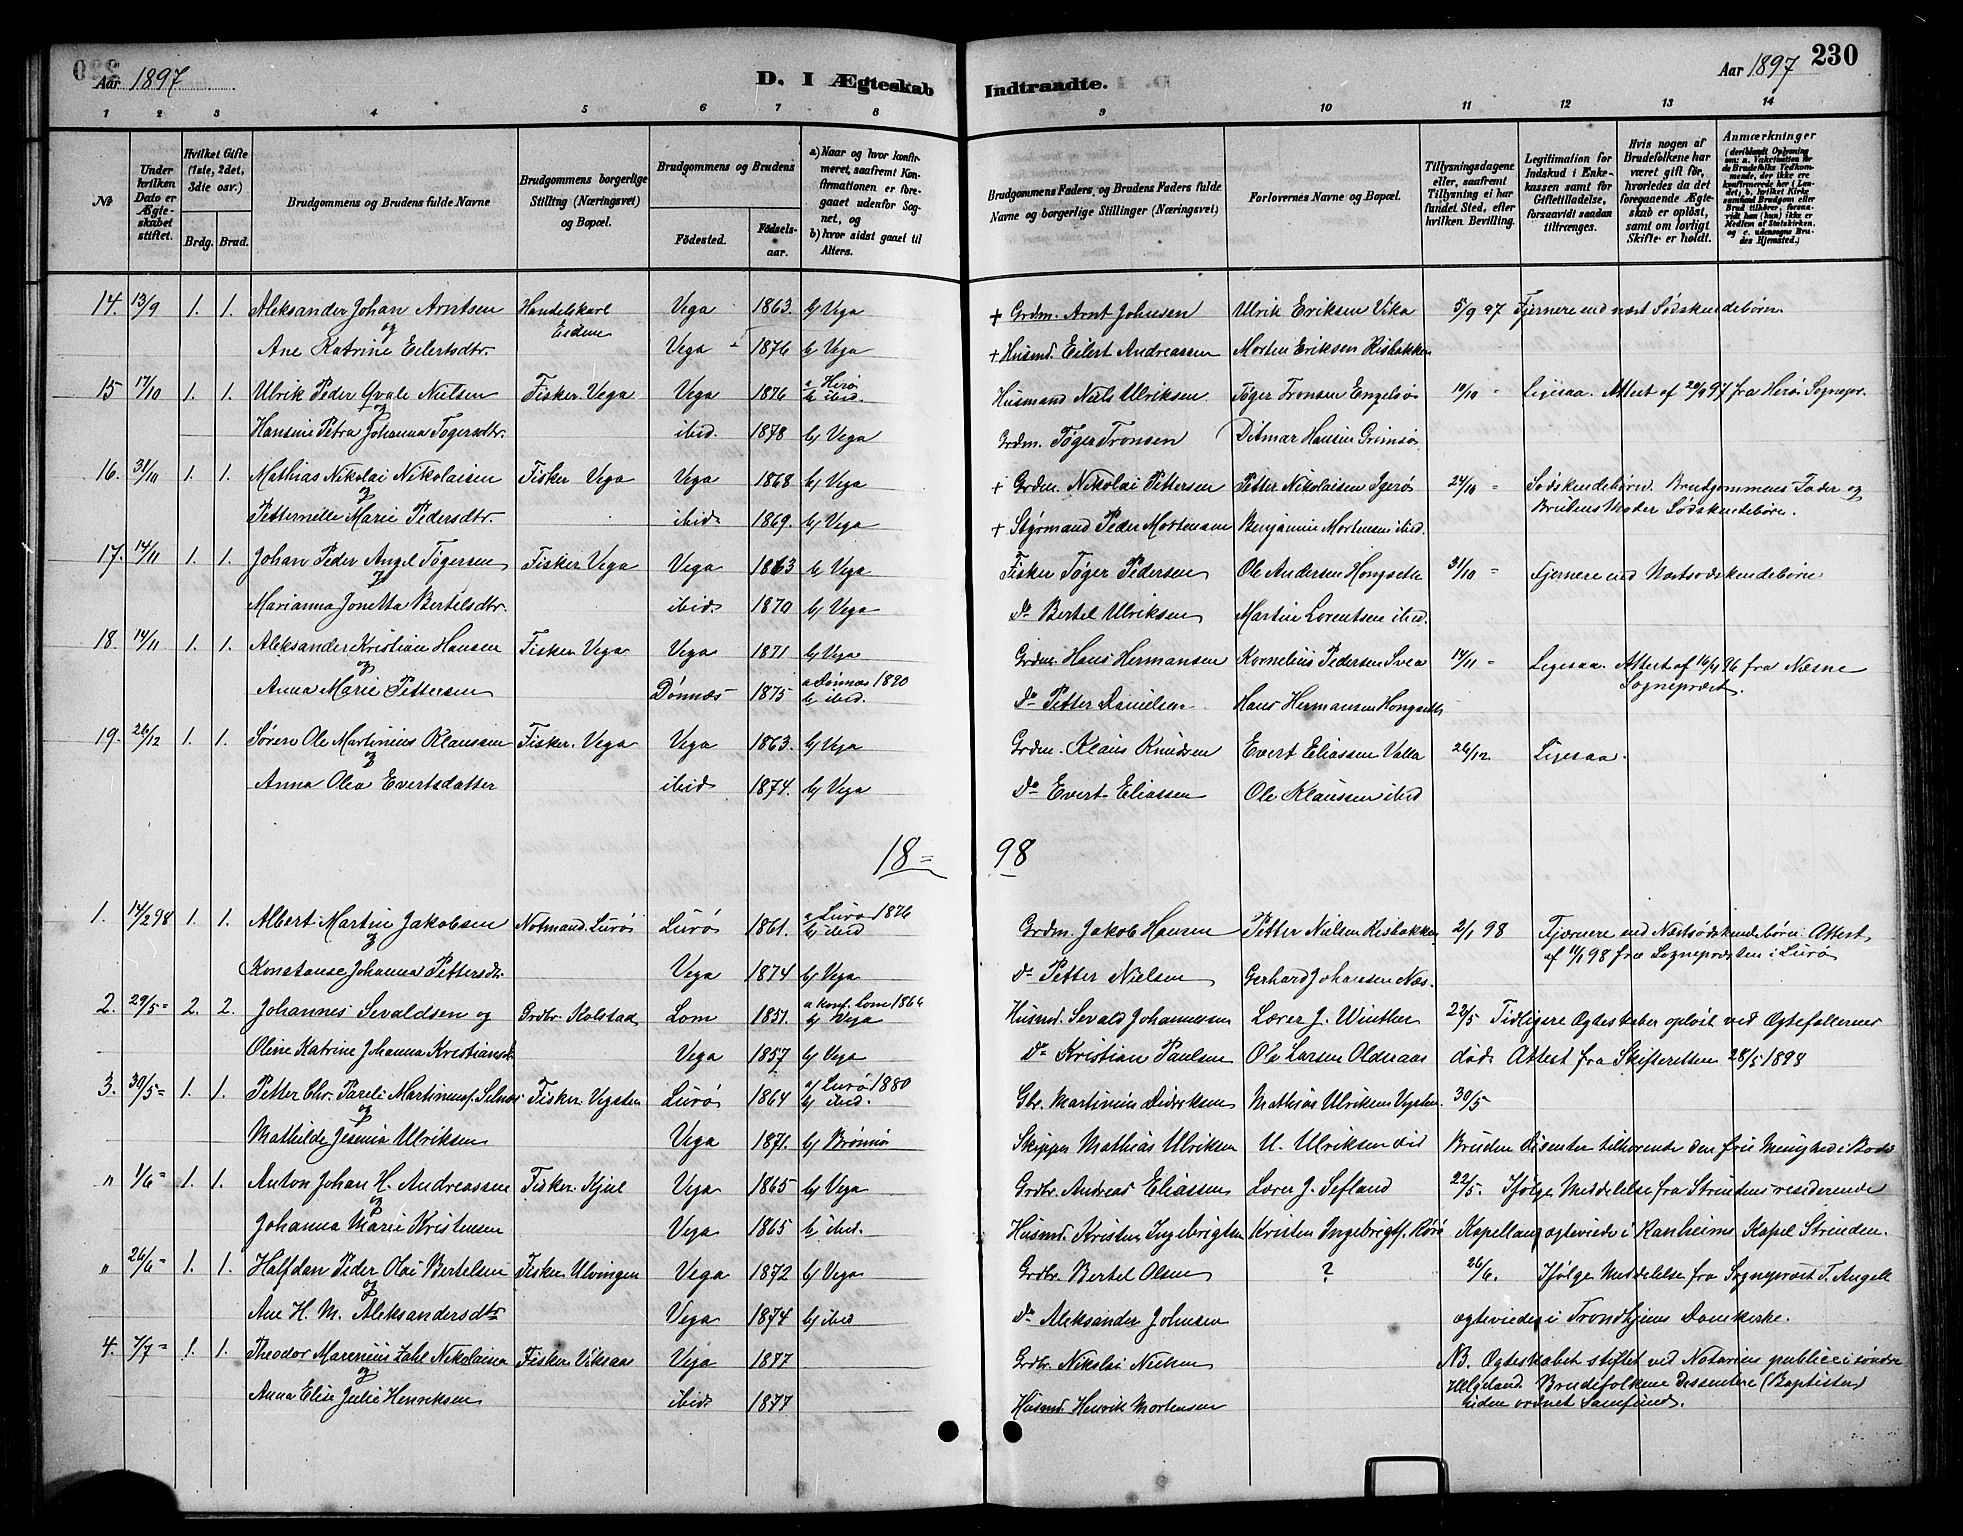 Aar 1897
D. I Ægteskab Indtraadte.
Aar 1897 230
1 2 3 4 5 6 7 8 9 10 11 12 13 14
No
Under hvilken Dato er Ægteskabet stiftet.
Hvilket Gifte (1ste, 2det, 3die osv.)
Brdg. Brud.
Brudgommens og Brudens fulde Navne
Brudgommens borgerlige Stilling (Næringsvei) og Bopæl.
Brudgommens og Brudens
Födested.
Födselsaar.
a) Naar og hvor konfirmeret, saafremt Konfirmationen er foregaaet udenfor Sognet, og
b) hvor sidst gaaet til Alters.
Brudgommens Faders, og Brudens Faders fulde Navne og borgerlige Stillinger (Næringsvei)
Forlovernes Navne og Bopæl.
Tillysningsdagene eller, saafremt Tillysning ei har fundet Sted, efter hvilken Bevilling.
Legitimation for Indskud i Enkekassen samt for Giftetilladelse, forsaavidt saadan tiltrænges.
Hvis nogen af Brudefolkene har været gift för, hvorledes da det foregaaende Ægteskab er oplöst, samt om lovligt Skifte er holdt.
Anmærkninger
14. 13/9 1. 1. Aleksander Johan Arntsen Handelskarl Eidem Vega 1863. b/ Vega + Grdm. Arnt Johnsen Ulrik Eriksen Vika 5/9 97 Fjernere end næst Sødskendebørn
og
Ane Katrine Eilertsdtr. Vega 1876 b/ Vega + Husmd. Eilert Andreassen Morten Eriksen Risbakken
15 17/10 1. 1. Ulrik Peder Qvale Nielsen Fisker Vega Vega 1876 a Herø b/ ibid. Husmand Niels Ulriksen Tøger Tronsen Engelsøs 10/10 = Ligesaa. Attest af 20/9 97 fra Herøs Sognepr.
og
Hansine Petra Johanna Tøgersdtr. ibid. 1878 b/ Vega Grdm. Tøger Tronsen Ditmar Hansen Grimsøs
16. 31/10 1. 1. Mathias Nikolai Nikolaisen Fisker Vega Vega 1868 b/ Vega + Grdm. Nikolai Pettersen Petter Nikolaisen Igerøs 24/10 = Sødskendebørn. Brudgommens Fader og
og
Petternelle Marie Pedersdtr. ibid. 1869. b/ Vega + Styrmand Peder Mortensen Benjamin Mortensen ibid. Brudens Moder Sødskendebørn.
17. 14/11 1. 1. Johan Peder Angel Tøgersen Fisker Vega Vega 1863 b/ Vega Fisker Tøger Pedersen Ole Andersen Hongseth 31/10 = Fjernere end Næstsødskendebørn
og
Marianna Jonetta Bertelsdtr. ibid. 1870 b/ Vega Do Bertel Ulriksen Martin Lorentsen ibid.
18. 14/11 1. 1. Aleksander Kristian Hansen Fisker Vega Vega 1871 b/ Vega Grdm. Hans Hermansen Kornelius Pedersen Svea 14/11 = Ligesaa. Attest af 16/4 96 fra Næsne
og
Anna Marie Pettersen Dønnæs 1875 a Dønnæs 1890 b/ ibid. Do Petter Danielsen Hans Hermansen Hongseth Sognepræst.
19. 26/12 1. 1. Søren Ole Martinius Klaussen Fisker Vega Vega 1863. b/ Vega Grdm. Klaus Knudsen Evert Eliassen Valla 26/12 Ligesaa.
og
Anna Olea Evertsdatter ibid 1874. b/ Vega Do Evert Eliassen Ole Klaussen ibid
18= 98
1. 14/2 98 1. 1. Albert Martin Jakobsen Notmand. Lurø Lurø 1861. a Lurø 1876 b/ ibid Grdm. Jakob Hansen Petter Nielsen Risbakken 2/1 98 Fjærnere end Næstsødskendebørn. Attest
og
Konstanse Johanna Pettersdtr. Vega 1874 b/ Vega Do Petter Nielsen Gerhard Johansen Næs. af 11/1 98 fra Sognepræsten i Lurø
2. 29/5 = 2. 2. Johannes Sevaldsen og Grdbr. Kolstad Lom 1851. a konf. Lom 1866 b/ Vega Husmd. Sevald Johannessen Lærer J. Winther 22/5 Tidligere Ægteskaber opløst ved Ægtefællernes
Oline Katrine Johanna Kristiansdtr Vega 1857 b/ Vega Do Kristian Paulsen Ole Larsen Olderaas død. Attest fra Skifteretten 28/5 1898
3. 30/5 = 1. 1. Petter Chr. Pareli Martinusf. Selnæs Fisker Vegsten Lurø 1864 a/ Lurø 1880 b/ ibid. Gbr. Martinius Didriksen Mathias Ulriksen Vegsten. 30/5
og
Mathilde Jesenia Ulriksen Vega 1871. b/ Brønnø Skipper Mathias Ulriksen U. Ulriksen did Bruden Disenter tilhørende den frie Menighed i Bodø
" 1/6 = 1. 1. Anton Johan H. Andreassen Fisker Kjul Vega 1865 b/ Vega Grdbr. Andreas Eliassen Lærer J. Sefland 22/5. Ifølge Meddelelse fra Strindens residerende
og
Johanna Marie Kristensen Vega 1865 b/ ibid. Husmd. Kristen Ingebrigtsen Kristen Ingebrigtf. Rørø Kapellan ægteviede i Ranheims Kapel Strinden.
" 26/6 1. 1. Halfdan Peder Olai Bertelsen Fisker Ulvingen Vega 1872 b/ Vega Grdbr. Bertel Olsen ? 26/6. Ifølge Meddelelse fra Sognepræst T. Angell
og
Ane H. M. Aleksandersdtr Vega 1874 b/ ibid Do Aleksander Johnsen ægteviede i Trondhjems Domkirke.
4. 7/7 = 1. 1. Theodor Marenius Zahl Nikolaisen Fisker Viksaas Vega 1877 Grdbr. Nikolai Nielsen NB. Ægteskabet stiftet ved Notarius publici i søndre
og
Anna Elise Julie Henriksen ibid. 1877 Husmd. Henrik Mortensen Helgeland. Brudefolkene Dessentere (Baptister)
uden ordnet Samfund.